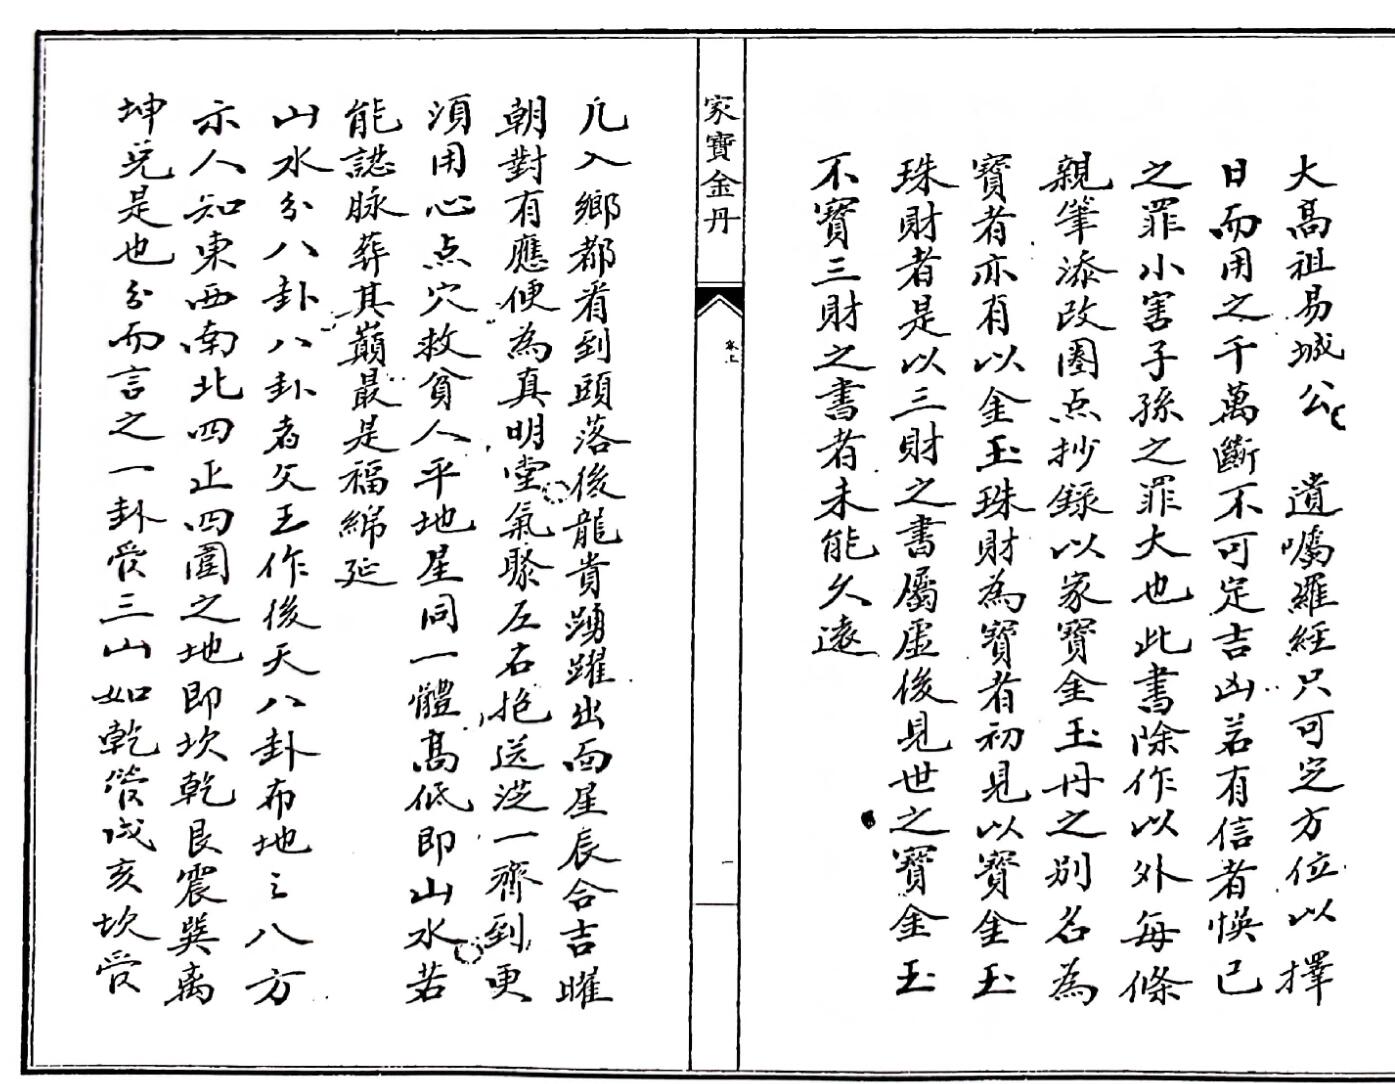 大高祖易城公 遺囑羅經只可定方位以擇
日而用之千萬斷不可定吉凶若有信者悞已
之罪小害子孫之罪大也此書除作以外每條
親筆添改圈点抄錄以家寶金玉丹之別名為
寶者亦有以金玉珠財為寶者初見以寶金玉
珠財者是以三財之書屬虛後見世之寶金玉
不寶三財之書者未能久遠
家寶金丹
卷上
一
凢入鄉都看到頭落後龍貴踴躍出面星辰合吉曜
朝對有應便為真明堂氣聚左右抱送從一齊到更
須用心点穴救貧人平地星同一體高低即山水若
能認脉葬其巔最是福綿延
山水分八卦八卦者文王作後天八卦布地之八方
示人知東西南北四正四圍之地即坎乾艮震巽离
坤兌是也分而言之一卦管三山如乾管戌亥坎管